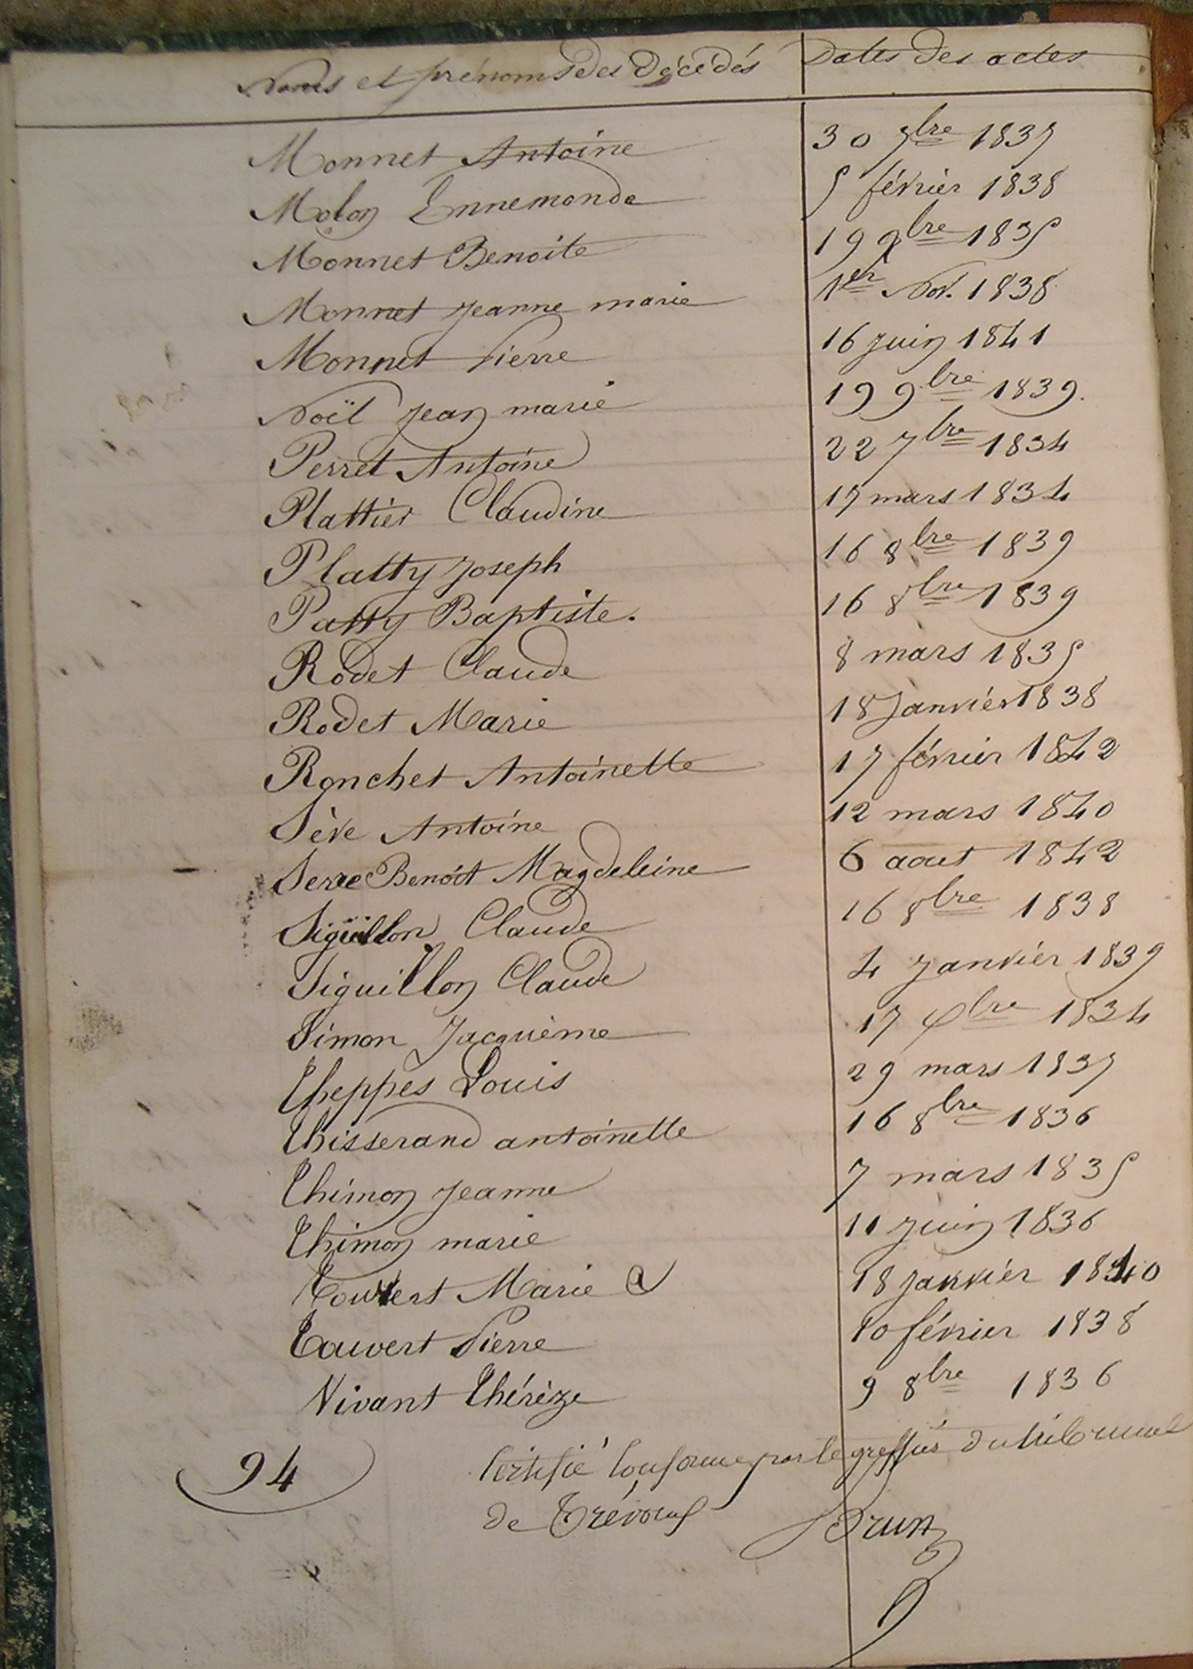 Noms et prénoms des Décédés Dates des actes
Monnet Antoine 30 7bre 1837
Molon Ennemonde 5 février 1838
Monnet Benoite 19 9bre 1835
Monnet jeanne marie 1er Nov. 1838
Monnet Pierre 16 juin 1841
Noël jean marie 19 9bre 1839.
Perret Antoine 22 7bre 1834
Plattier Claudine 17 mars 1834
Platty joseph 16 8bre 1839
Patty Baptiste. 16 8bre 1839
Rodet Claude 8 mars 1835
Rodet Marie 18 Janvier 1838
Ronchet Antoinette 17 février 1842
Sève Antoine 12 mars 1840
Serve Benoit Magdeleine 6 aout 1842
Siguillon Claude 16 8bre 1838
Siguillon Claude 4 janvier 1839
Simon Jacquème 17 bre 1834
Theppes Louis 29 mars 1837
Thisserand antoinette 16 8bre 1836
Thimon jeanne 7 mars 1835
Thimon marie 11 juin 1836
Touvert Marie 18 janvier 1840
Touvert Pierre 10 février 1838
Vivant Thérèze 9 8bre 1836
94 Certifié conforme par le greffier du tribunal
de Trévoux Brun